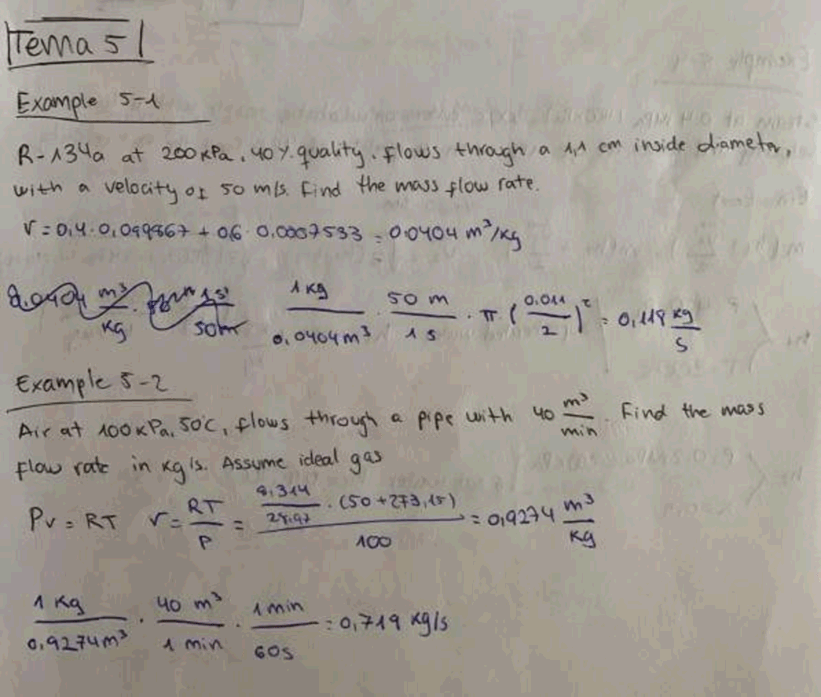 Tema 5
Example 5-1
R-134a at 200 kPa, 40% quality, flows through a 1,1 cm inside diameter,
with a velocity of 50 m/s. Find the mass flow rate.
v = 0,4 · 0,099867 + 0,6 · 0,0007533 = 0,0404 m³/kg
1 kg / 0,0404 m³ · 50 m / 1 s · π · (0,011 / 2)² = 0,118 kg/s
Example 5-2
Air at 100 kPa, 50°C, flows through a pipe with 40 m³/min. Find the mass
flow rate in kg/s. Assume ideal gas
Pv = RT v = RT/P = 8,314/28,97 · (50 + 273,15) / 100 = 0,9274 m³/kg
1 kg / 0,9274 m³ · 40 m³ / 1 min · 1 min / 60 s = 0,719 kg/s